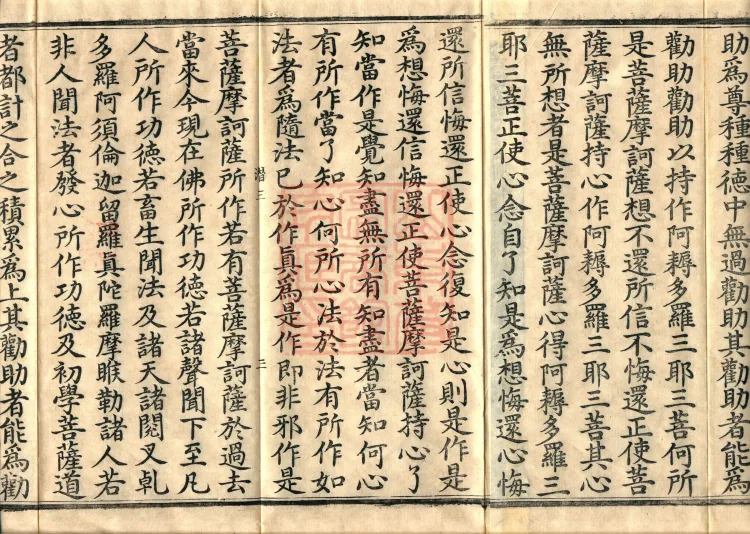 助爲尊種種德中無過勸助其勸助者能爲
勸助勸助以持作阿耨多羅三耶三菩何所
是菩薩摩訶薩想不還所信不悔還正使菩
薩摩訶薩持心作阿耨多羅三耶三菩其心
無所想者是菩薩摩訶薩心得阿耨多羅三
耶三菩正使心念自了知是爲想悔還心悔
還所信悔還正使心念復知是心則是作是
爲想悔還信悔還正使菩薩摩訶薩持心了
知當作是覺知盡無所有知盡者當知何心
有所作當了知心何所心法於法有所作如
法者爲隨法已於作眞爲是作即非邪作是
潜三
二
菩薩摩訶薩所作若有菩薩摩訶薩於過去
當來今現在佛所作功德若諸聲聞下至凡
人所作功德若畜生聞法及諸天諸閱叉乹
多羅阿須倫迦留羅眞陀羅摩睺勒諸人若
非人聞法者發心所作功德及初學菩薩道
者都計之合之積累爲上其勸助者能爲勸